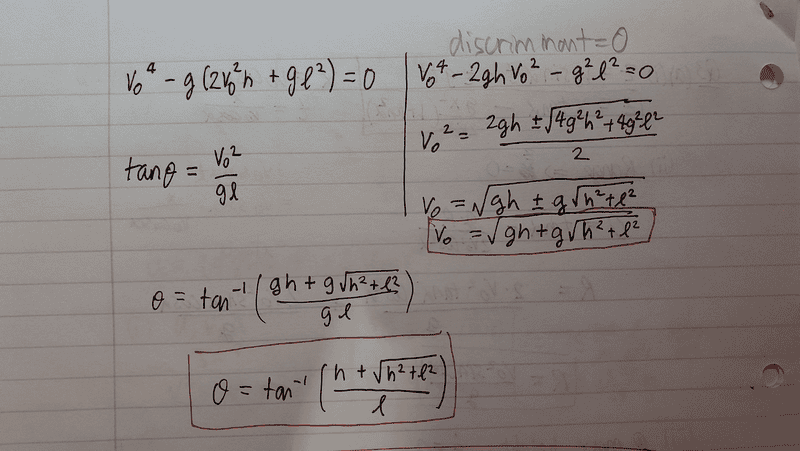 discriminant = 0
v₀⁴ - g(2v₀²h + gℓ²) = 0
tanθ = v₀²/gℓ
v₀⁴ - 2ghv₀² - g²ℓ² = 0
v₀² = (2gh ± √(4g²h² + 4g²ℓ²))/2
v₀ = √(gh ± g√(h² + ℓ²))
v₀ = √(gh + g√(h² + ℓ²))
θ = tan⁻¹((gh + g√(h² + ℓ²))/gℓ)
θ = tan⁻¹((h + √(h² + ℓ²))/ℓ)